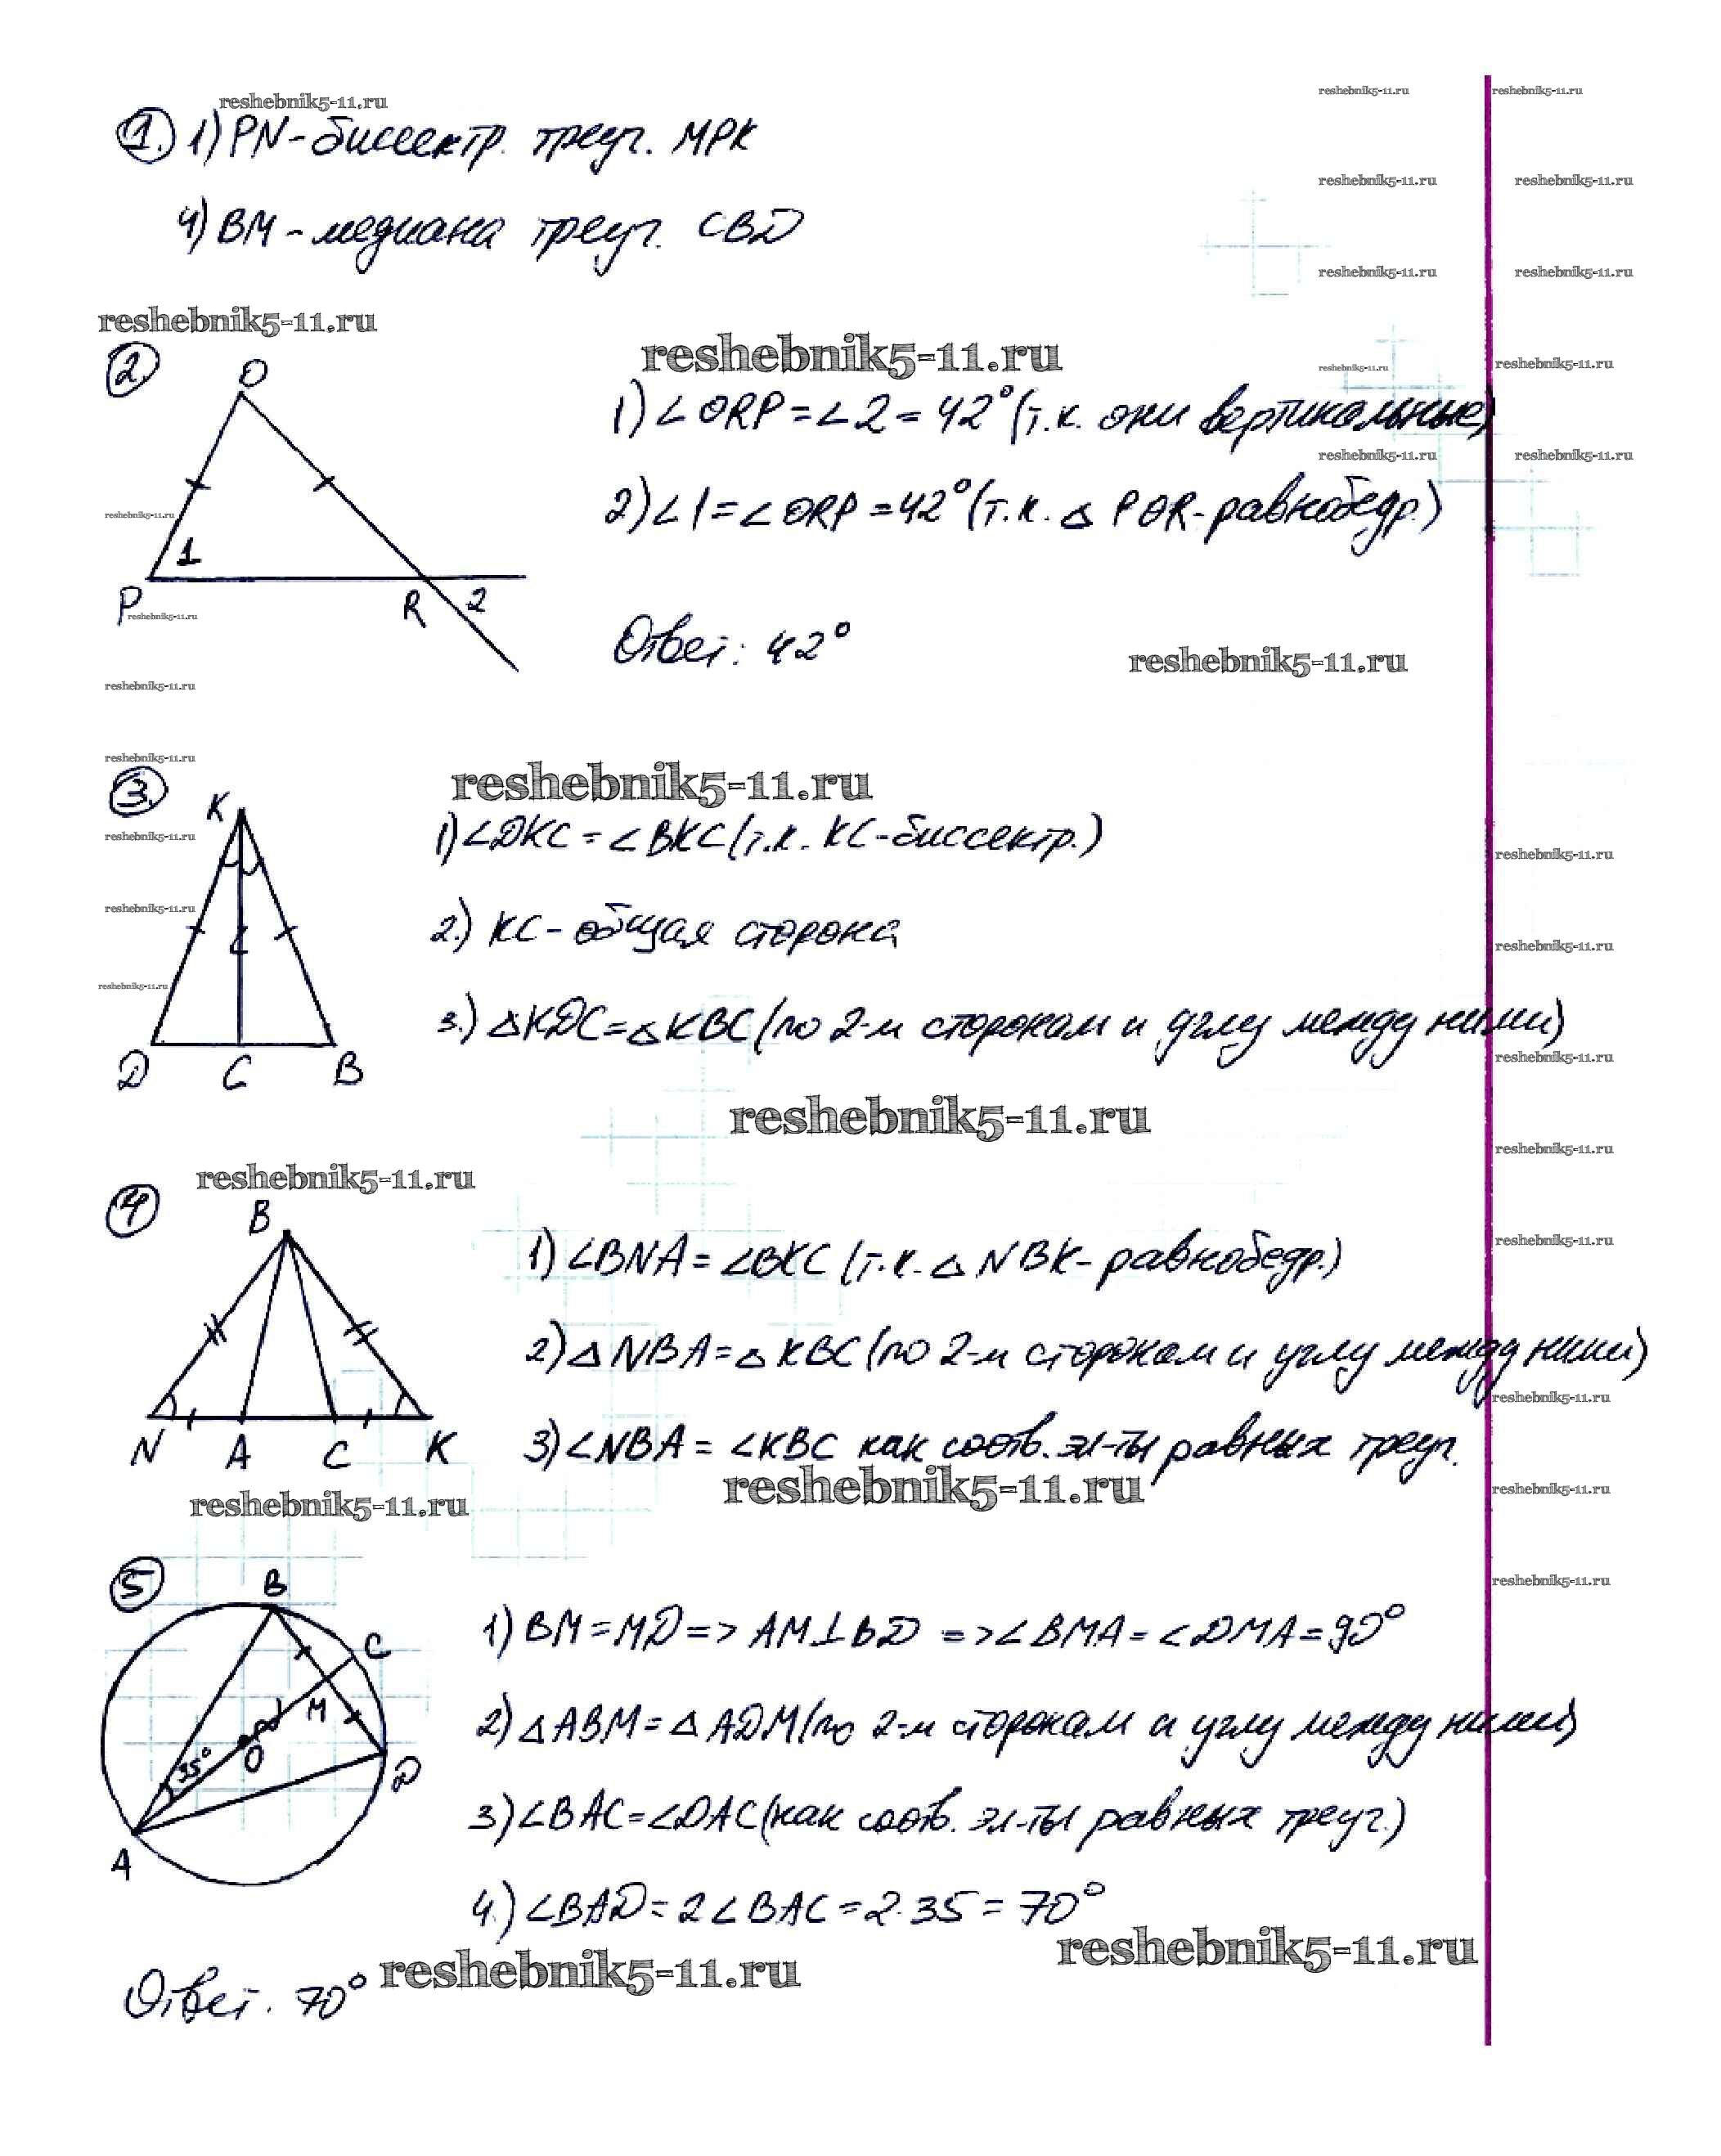 reshebnik5-11.ru
① 1) PN - биссектр. треуг. MPK
4) BM - медиана треуг. CBD
reshebnik5-11.ru
reshebnik5-11.ru
②
O
1
P
R
2
1) ∠ORP = ∠2 = 42° (т.к. они вертикальные)
2) ∠1 = ∠ORP = 42° (т.к. △ POR - равнобедр.)
Ответ: 42°
reshebnik5-11.ru
③
K
D
C
B
reshebnik5-11.ru
1) ∠DKC = ∠BKC (т.к. KC - биссектр.)
2.) KC - общая сторона
3.) △KDC = △KBC (по 2-м сторонам и углу между ними)
reshebnik5-11.ru
reshebnik5-11.ru
④
B
N
A
C
K
1) ∠BNA = ∠BKC (т.к. △ NBK - равнобедр.)
2) △ NBA = △ KBC (по 2-м сторонам и углу между ними)
3) ∠NBA = ∠KBC как соотв. эл-ты равных треуг.
reshebnik5-11.ru
reshebnik5-11.ru
⑤
B
C
M
O
35°
D
A
1) BM = MD => AM⊥BD => ∠BMA = ∠DMA = 90°
2) △ABM = △ADM (по 2-м сторонам и углу между ними)
3) ∠BAC = ∠DAC (как соотв. эл-ты равных треуг.)
4.) ∠BAD = 2∠BAC = 2·35 = 70°
reshebnik5-11.ru
Ответ. 70°
reshebnik5-11.ru